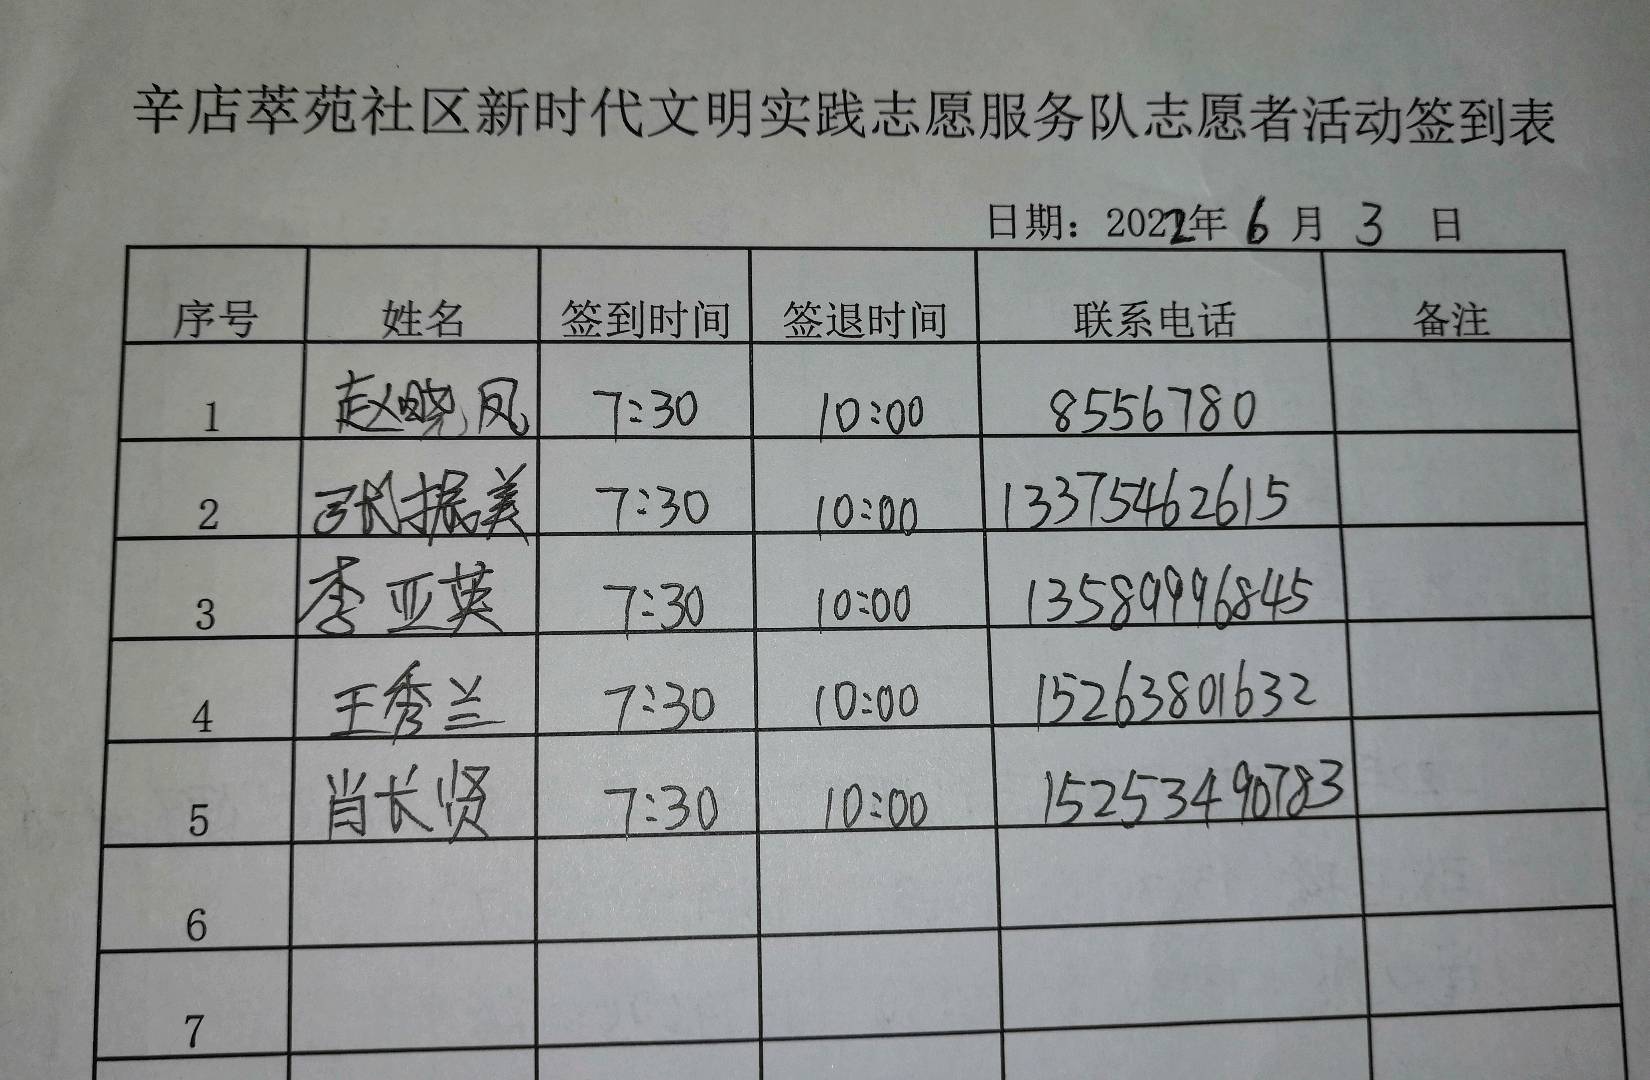 辛店萃苑社区新时代文明实践志愿服务队志愿者活动签到表
日期：2022年 6 月 3 日
序号 姓名 签到时间 签退时间 联系电话 备注
1 赵晓凤 7:30 10:00 8556780
2 张振美 7:30 10:00 13375462615
3 李亚英 7:30 10:00 13589996845
4 王秀兰 7:30 10:00 15263801632
5 肖长贤 7:30 10:00 15253490783
6
7